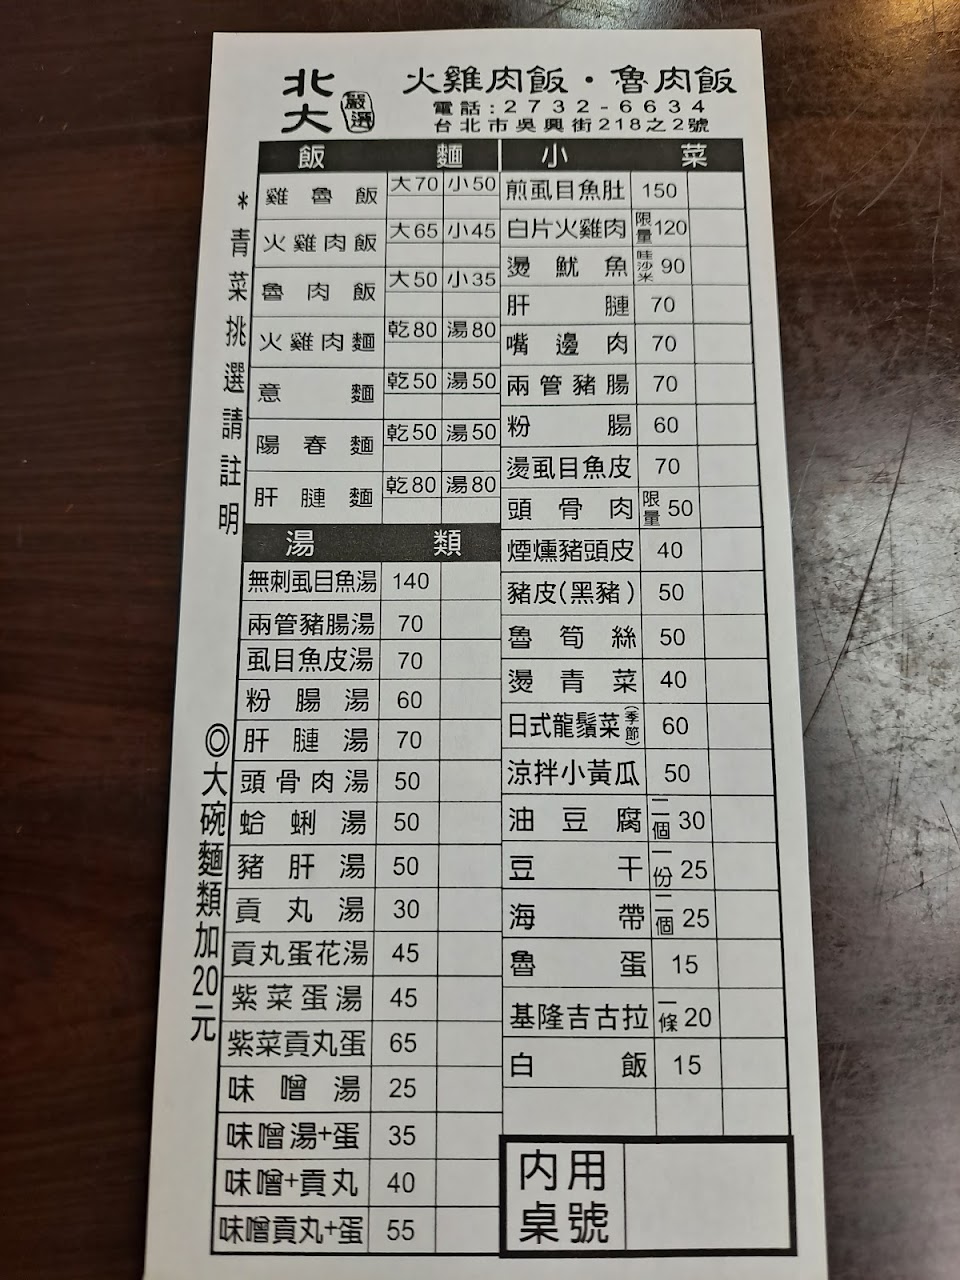 北大 嚴選
火雞肉飯・魯肉飯
電話:2732-6634
台北市吳興街218之2號
飯 麵
雞魯飯 大70 小50
火雞肉飯 大65 小45
魯肉飯 大50 小35
火雞肉麵 乾80 湯80
意麵 乾50 湯50
陽春麵 乾50 湯50
肝膤麵 乾80 湯80
湯類
無刺虱目魚湯 140
兩管豬腸湯 70
虱目魚皮湯 70
粉腸湯 60
肝膤湯 70
頭骨肉湯 50
蛤蜊湯 50
豬肝湯 50
貢丸湯 30
貢丸蛋花湯 45
紫菜蛋湯 45
紫菜貢丸蛋 65
味噌湯 25
味噌湯+蛋 35
味噌+貢丸 40
味噌貢丸+蛋 55
小菜
煎虱目魚肚 150
白片火雞肉 限量120
燙魷魚 哇沙米 90
肝膤 70
嘴邊肉 70
兩管豬腸 70
粉腸 60
燙虱目魚皮 70
頭骨肉 限量 50
煙燻豬頭皮 40
豬皮(黑豬) 50
魯筍絲 50
燙青菜 40
日式龍鬚菜(季節) 60
涼拌小黃瓜 50
油豆腐 二個 30
豆干 一份 25
海帶 二個 25
魯蛋 15
基隆吉古拉 一條 20
白飯 15
內用桌號
*青菜挑選請註明
◎大碗麵類加20元